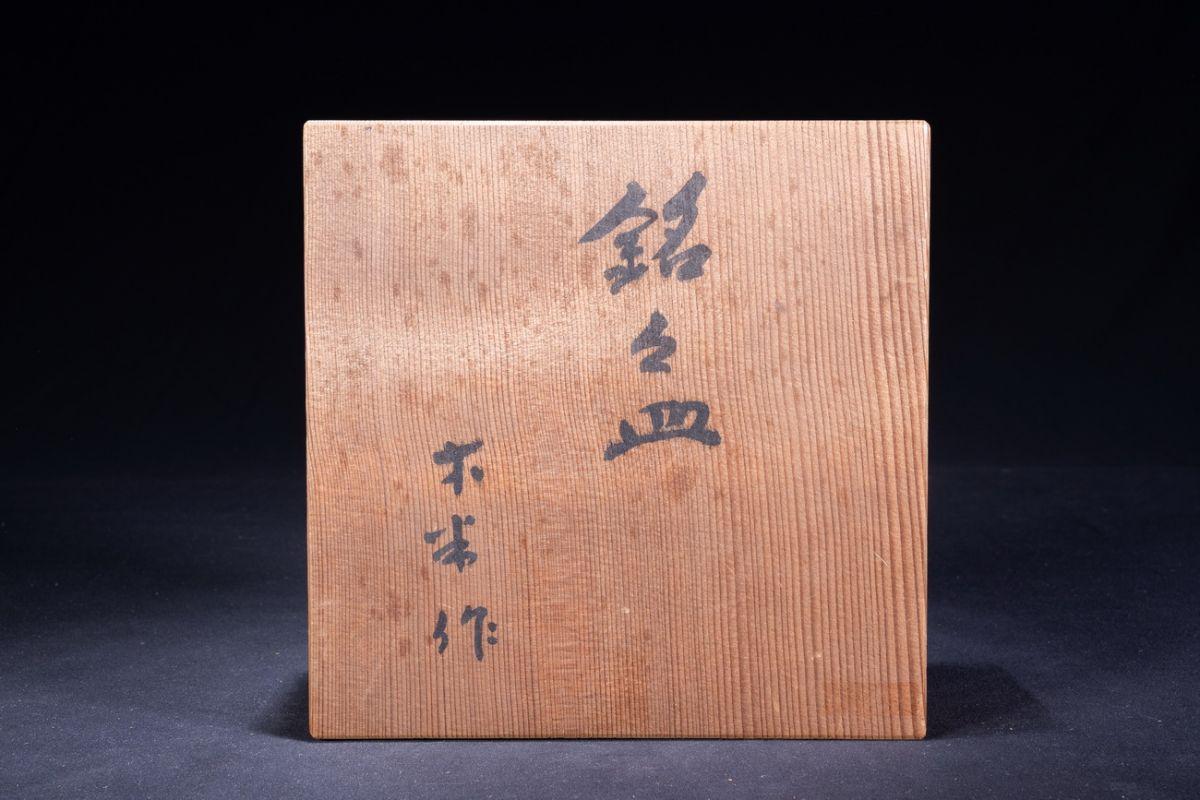 銘々皿
木米作